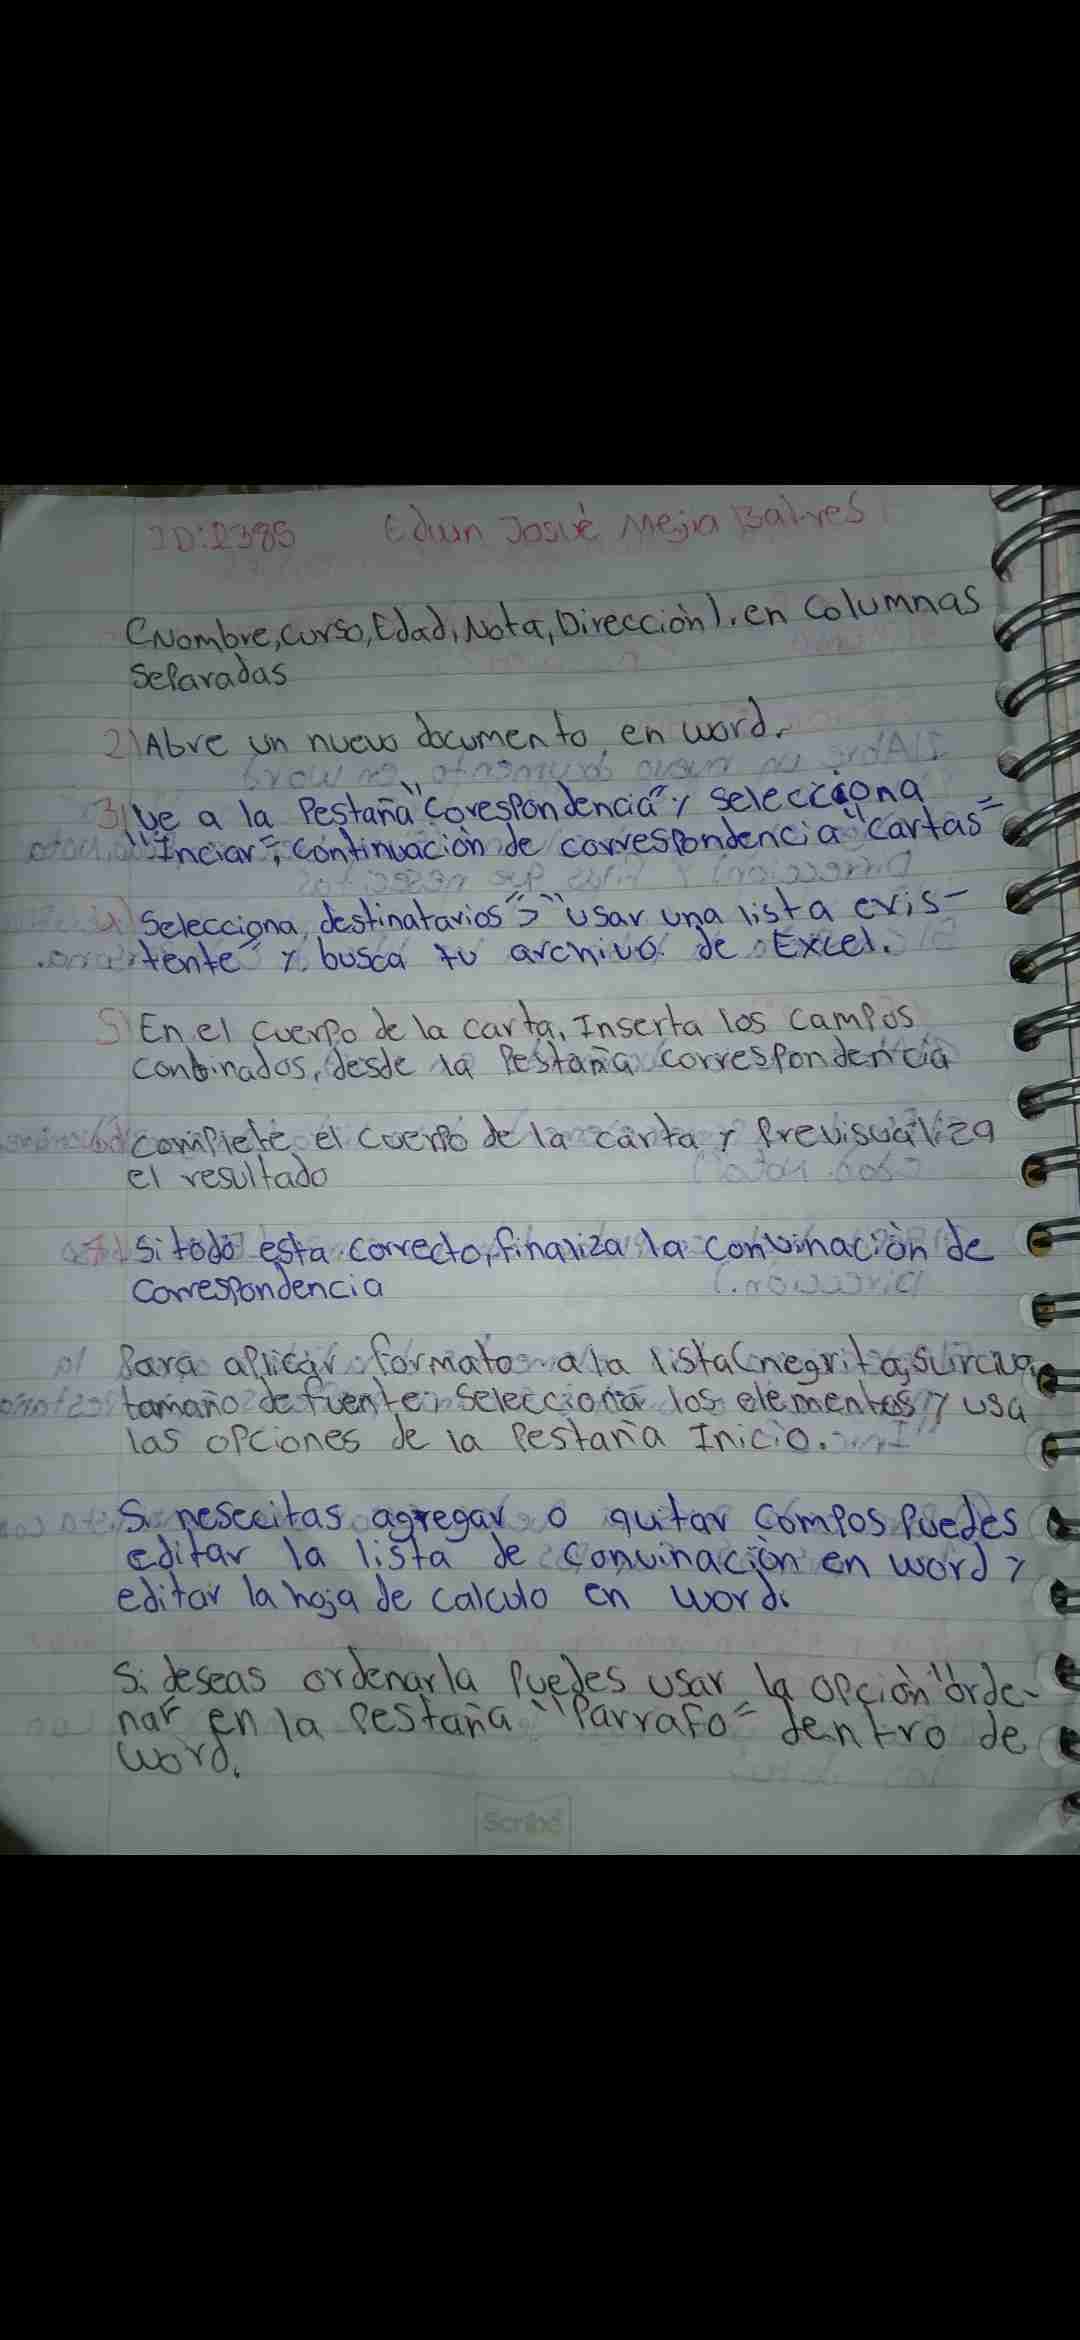 ID:2385 Edwin Josué Mejia Batres
(Nombre, curso, Edad, Nota, Dirección). en columnas
separadas
2) Abre un nuevo documento en word.
3) Ve a la Pestaña "Corespondencia" y selecciona
"Inciar", continuación de correspondencia "cartas"
4) Selecciona destinatarios > "usar una lista exis-
tente" y busca tu archivo de Excel.
5) En el cuerpo de la carta, Inserta los campos
conbinados, desde la Pestaña correspondencia
6) complete el cuerpo de la carta y Previsualiza
el resultado
7) Si todo esta correcto, finaliza la convinaciòn de
correspondencia
Para aplicar formato a la lista (negrita, surciva,
tamaño de fuente, selecciona los elementos y usa
las opciones de la Pestaña Inicio.
Si nesecitas agregar o quitar compos Puedes
editar la lista de convinaciòn en word y
editar la hoja de calculo en word.
Si deseas ordenarla Puedes usar la opciòn "orde-
nar en la Pestaña "Parrafo" dentro de
word.
Scribe